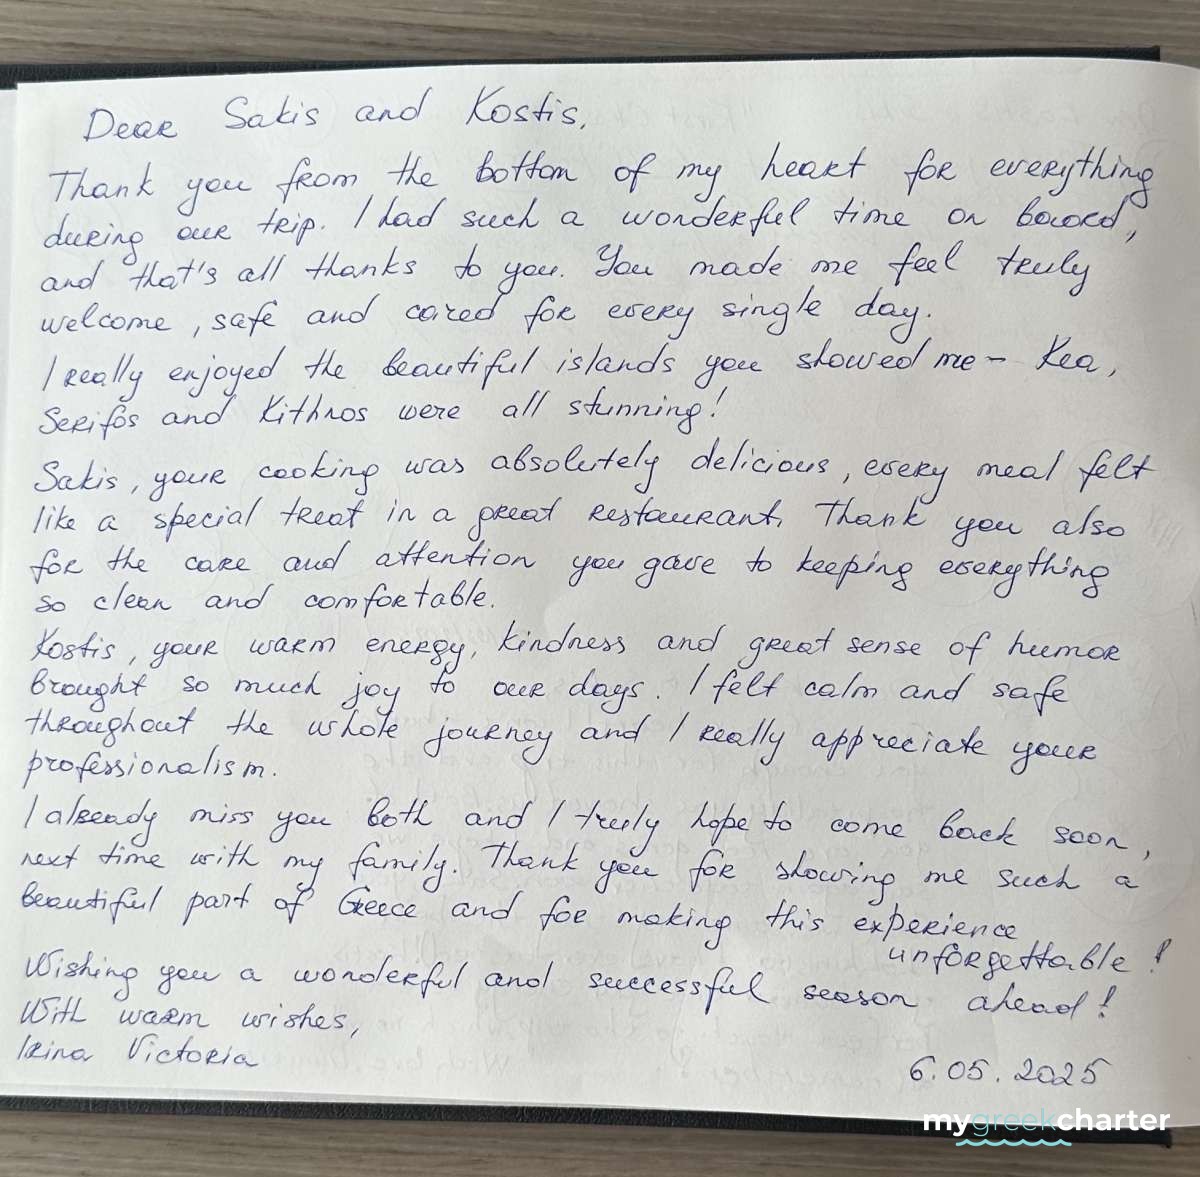 Dear Sakis and Kostis,
Thank you from the bottom of my heart for everything
during our trip. I had such a wonderful time on board,
and that's all thanks to you. You made me feel truly
welcome, safe and cared for every single day.
I really enjoyed the beautiful islands you showed me – Kea,
Serifos and Kithnos were all stunning!
Sakis, your cooking was absolutely delicious, every meal felt
like a special treat in a great restaurant. Thank you also
for the care and attention you gave to keeping everything
so clean and comfortable.
Kostis, your warm energy, kindness and great sense of humor
brought so much joy to our days. I felt calm and safe
throughout the whole journey and I really appreciate your
professionalism.
I already miss you both and I truly hope to come back soon,
next time with my family. Thank you for showing me such a
beautiful part of Greece and for making this experience
unforgettable!
Wishing you a wonderful and successful season ahead!
With warm wishes,
Irina Victoria
6.05.2025
mygreekcharter